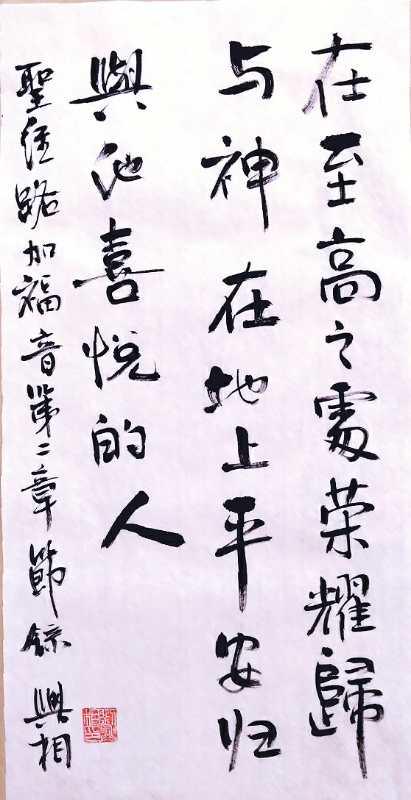 在至高之處荣耀歸
与神在地上平安归
與他喜悦的人
聖经路加福音第二章節錄 興相